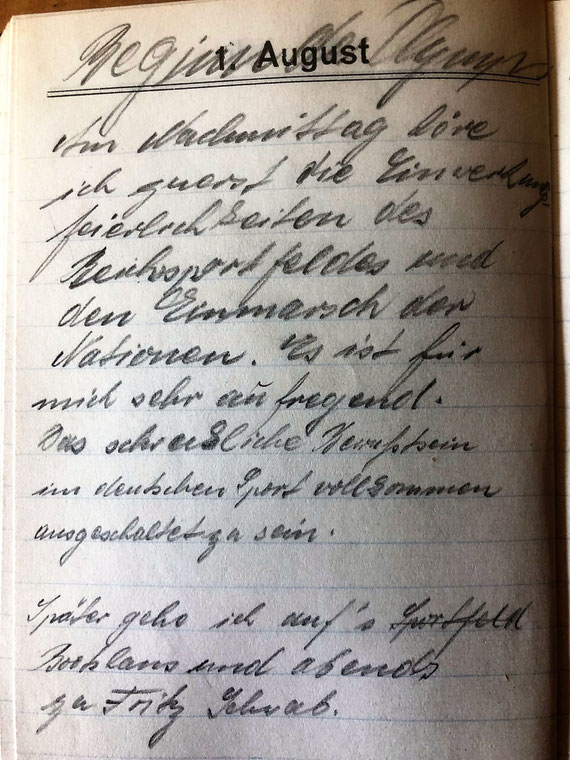 Beginn der Olymp
1. August
Am Nachmittag höre
ich zuerst die Einweihungs-
feierlichkeiten des
Reichssportfeldes und
den Einmarsch der
Nationen. Es ist für
mich sehr aufregend.
Das schreckliche Bewußtsein
im deutschen Sport vollkommen
ausgeschaltet zu sein.
Später gehe ich auf's Sportfeld
und abends
zu Fritz Schwab.